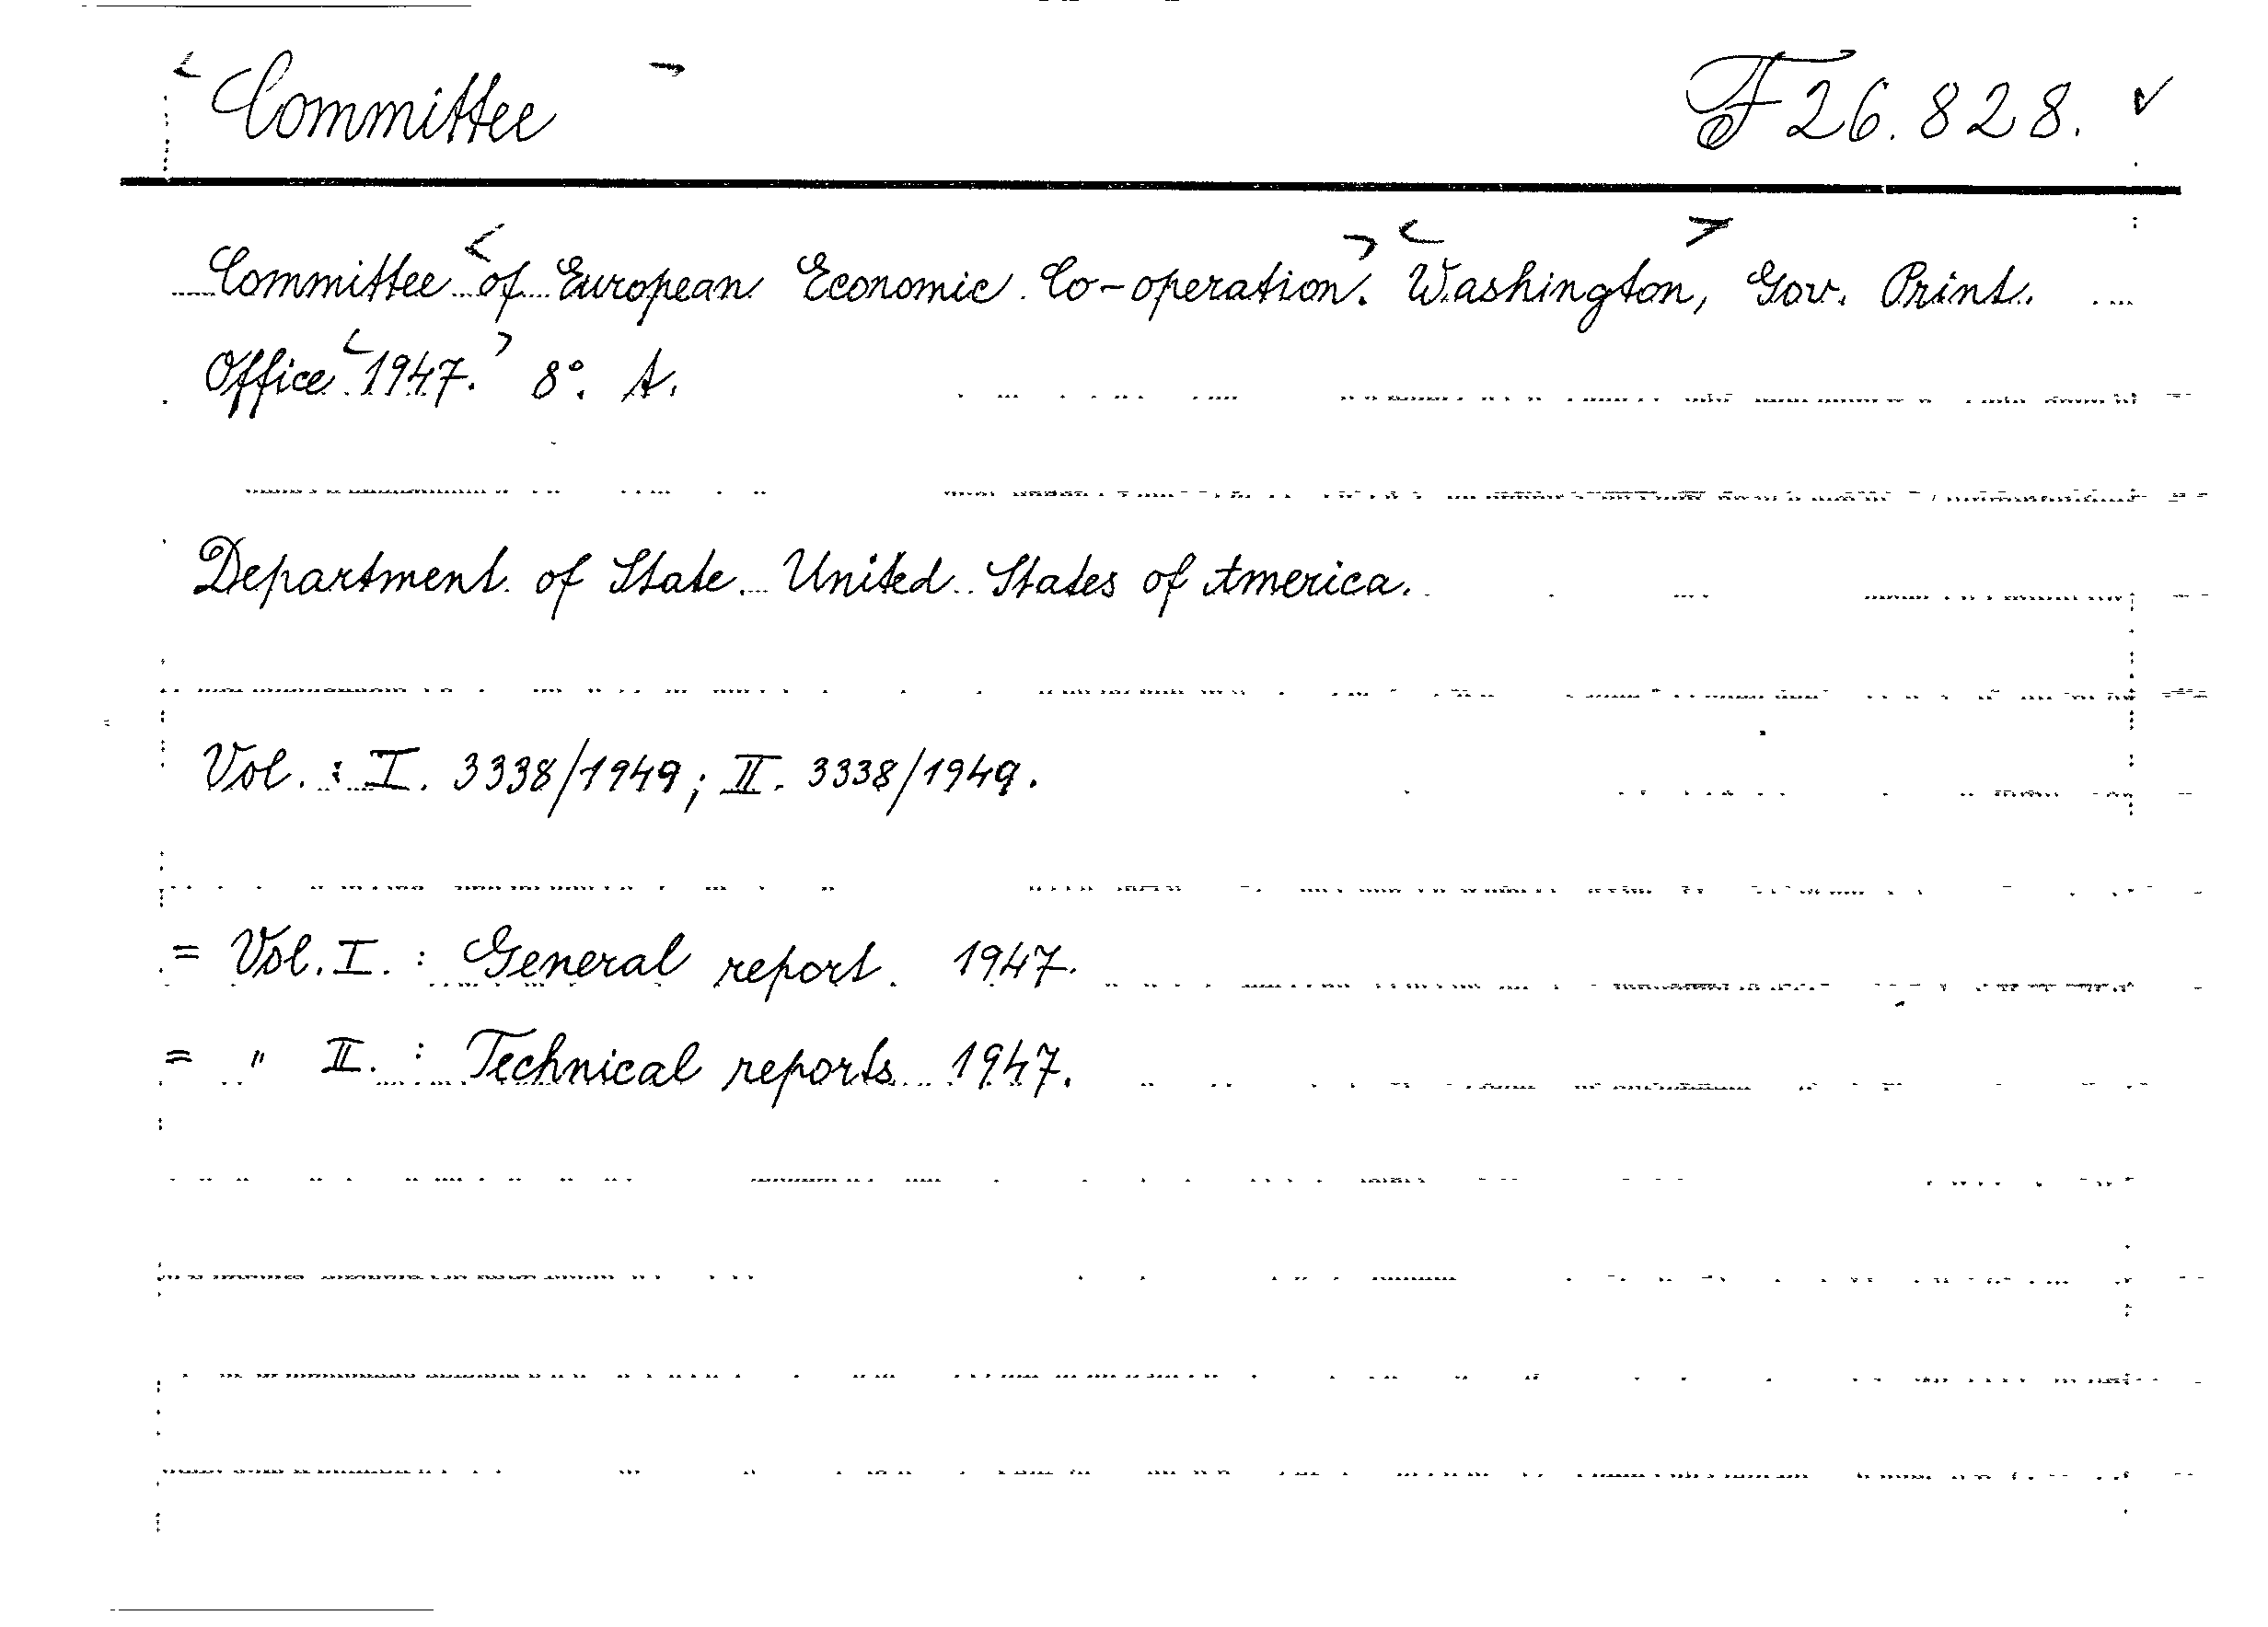 Committee F 26.828.
Committee of European Economic Co-operation. Washington, Gov. Print.
Office 1947. 8°. A.
Department of State. United States of America.
Vol. : I. 3338/1949; II. 3338/1949.
= Vol. I. : General report. 1947.
= " II. : Technical reports 1947.